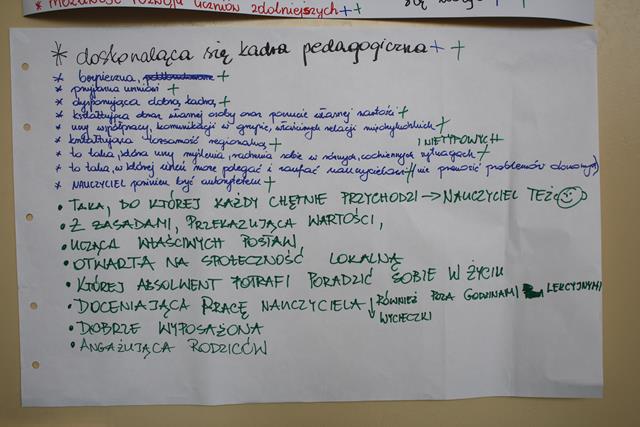 * MOŻLIWOŚĆ ROZWOJU UCZNIÓW ZDOLNIEJSZYCH + +
* doskonaląca się kadra pedagogiczna + +
* bezpieczna, +
* przyjazna uczniowi +
* dysponująca dobrą kadrą, +
* kształtująca obraz własnej osoby oraz poczucie własnej wartości +
* uczy współpracy, komunikacji w grupie, właściwych relacji międzyludzkich +
* kształtująca tożsamość regionalną +
I NIETYPOWYCH
* to taka, która uczy myślenia, radzenia sobie w różnych, codziennych sytuacjach +
* to taka, w której uczeń może polegać i zaufać nauczycielom + (nie przenosić problemów domowych)
* NAUCZYCIEL powinien być autorytetem +
• TAKA, DO KTÓREJ KAŻDY CHĘTNIE PRZYCHODZI → NAUCZYCIEL TEŻ
• Z ZASADAMI, PRZEKAZUJĄCA WARTOŚCI,
• UCZĄCA WŁAŚCIWYCH POSTAW,
• OTWARTA NA SPOŁECZNOŚĆ LOKALNĄ
• KTÓREJ ABSOLWENT POTRAFI PORADZIĆ SOBIE W ŻYCIU
• DOCENIAJĄCA PRACĘ NAUCZYCIELA RÓWNIEŻ POZA GODZINAMI LEKCYJNYMI
↓ WYCIECZKI
• DOBRZE WYPOSAŻONA
• ANGAŻUJĄCA RODZICÓW